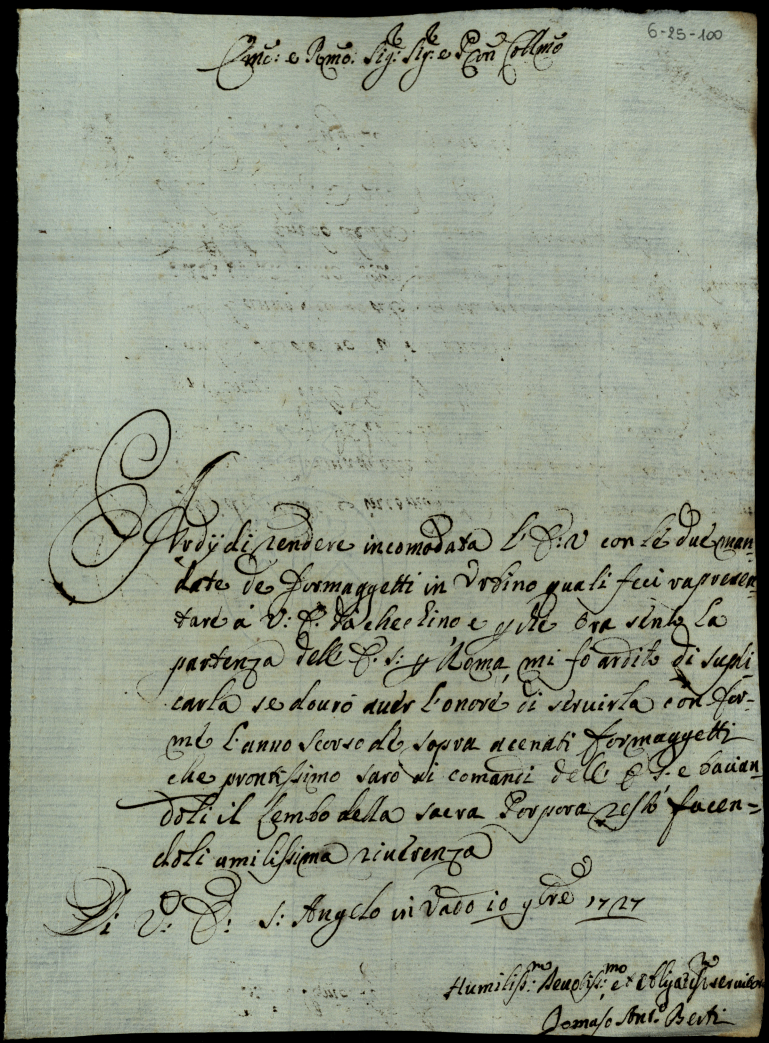 6-25-100
Emo: e Rmo: Sig: Sig: e Pron Collmo
Ardij di rendere incomodata l'E: V con le due man-
date de formaggetti in Urbino quali feci rapresen-
tare à V: E: da che ora sento la
partenza dell'E. S: p Roma, mi fò ardito di supli-
carla se dourò auer l'onore di seruirla con for-
me l'anno scorso de sopra acenati formaggetti
che prontissimo sarò ai comandi dell' E: S: e bacian-
doli il Lembo della sacra Porpora resto facen=
doli umilissima riuerenza
Di V: E: S: Angelo in Vado 10 9bre 1727
Humiliss:mo Deuotiss:mo et Obligatiss: seruitore
Tomaso Ant:o Berti